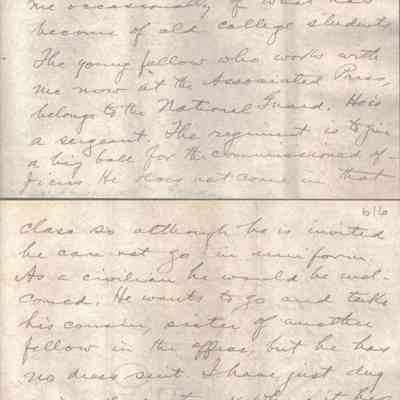 me occasionally of what has
become of old college students
The young fellow who works with
me now at the Associated Press,
belongs to the National Guard. He is
a sergeant. The regiment is to give
a big ball for the commissioned of-
ficers. He does not come in that
616
class so although he is invited
he can not go in uniform.
As a civilian he would be wel-
comed. He wants to go and take
his cousin, sister of another
fellow in the office, but he has
no dress suit. I have just dug